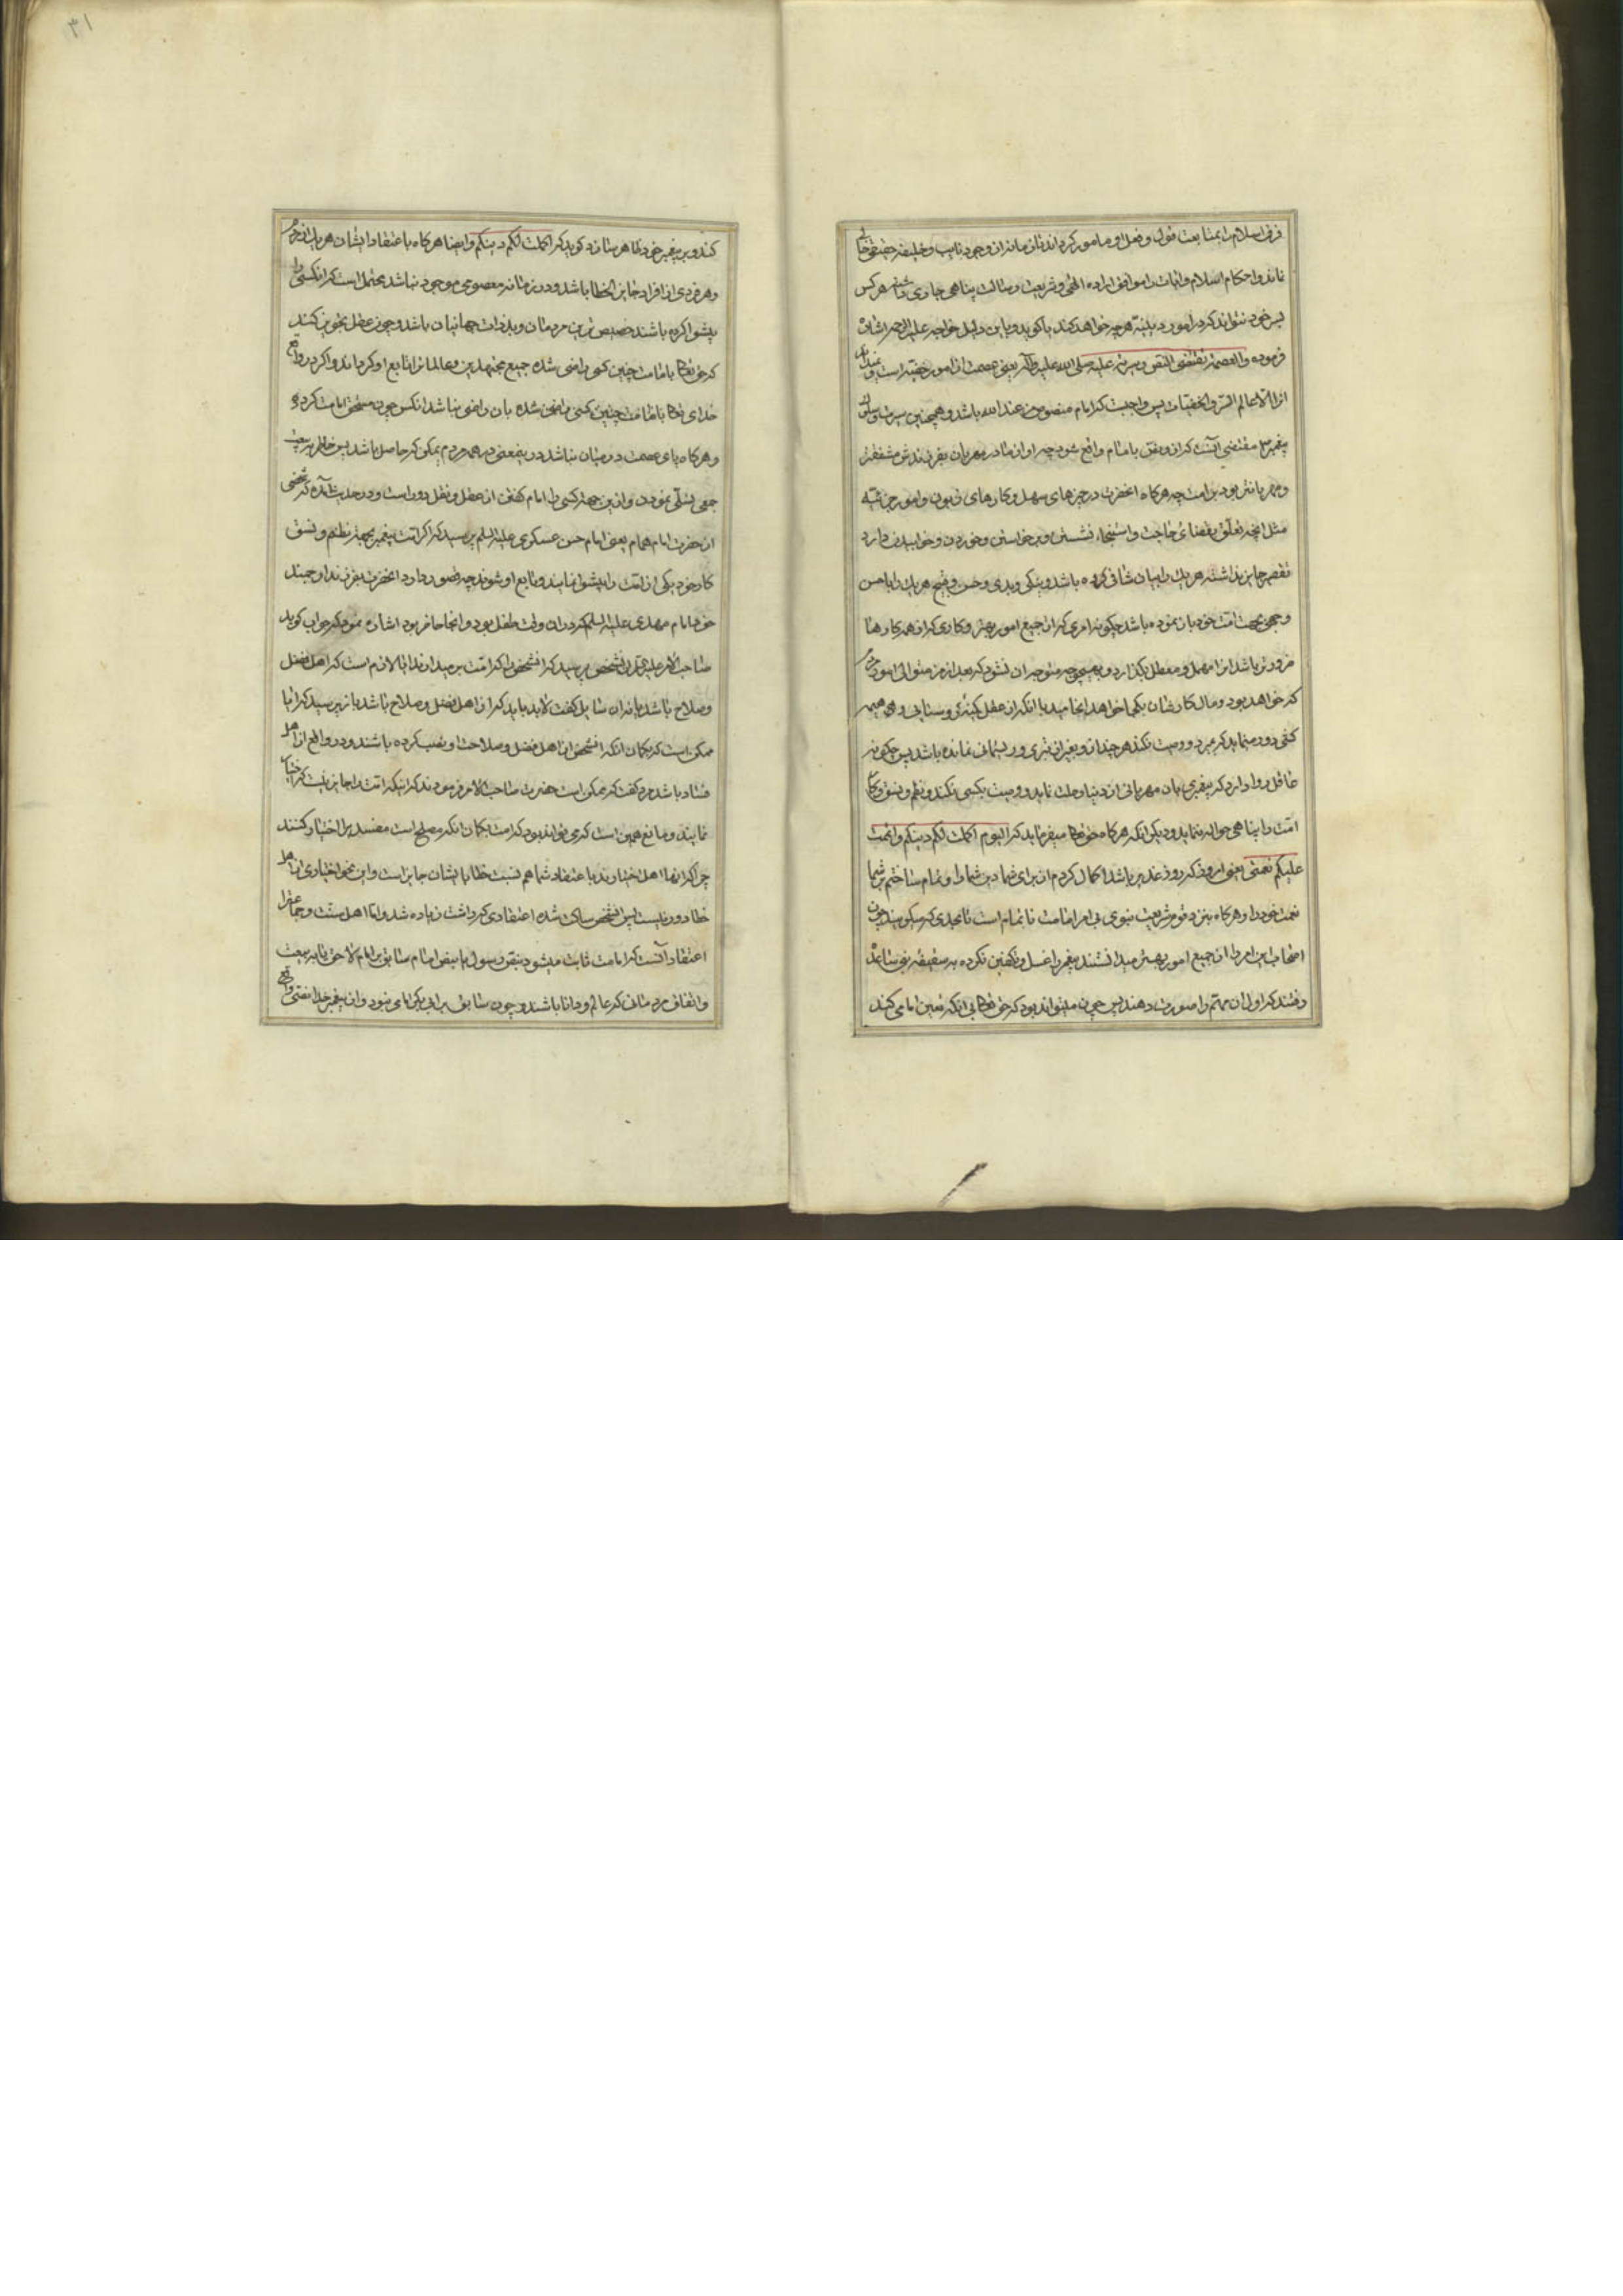 فرق اسلام را بمتابعت قول و فعل او مامور کرداند تا زمانه از وجود نایب و خلیفه حقیقی خالی
نماند و احکام اسلام و ایمان را موافق اراده الهی و شریعت رسالت پناهی جاری داشته هر کس
بسر خود نتواند که در امور دینیه هر چه خواهد کند یا کوید و باین دلیل خواجه علیه الرحمه اشاره
فرموده والعصمة تقتضی النص وسیرته علیه صلی الله علیه وآله یعنی عصمت از امور خفیه است و نمیداند
انرا الا عالم السر والخفیات پس واجبست که امام منصوص من عند الله باشد و همچنین سیرت و سلوک
پیغمبر ما مقتضی آنست که از و نص بامام واقع شود چه او از مادر مهربان بفرزندش مشفقتر
و مهربانتر بود بر امت چه هرکاه انحضرت در چیزهای سهل و کارهای زبون و امور جزئیه
مثل انچه تعلق بقضای حاجت و استنجاء و نشستن و برخواستن و خوردن و خوابیدن دارد
تقصیر جایز نداشته هر یک را بیان شافی کرده باشد و نیکی و بدی و حسن و قبح هر یک را باحسن
وجهی بجهت امت خود بیان نموده باشد چکونه امری که از جمیع امور بهتر و کاری که از همه کارها
ضرورتر باشد انرا مهمل و معطل بکذارد و بهیچوجه متوجه ان نشود که بعد از من متولی امور مردم
که خواهد بود و مال کارشان بکجا خواهد انجامید با انکه از عقل کبیری روستایی و
کسی دور مینماید که بمیرد و وصیت نکند هر چند از و بغیر از تبری و ریسمانی نمانده باشد پس چکونه
عاقل روا دارد که پیغمبری بان مهربانی از دنیا رحلت نماید و وصیت بکسی نکند و نظم و نسق کار
امت را بناهی حواله ننماید و دیکر انکه هرکاه حق تعالی میفرماید که الیوم اکملت لکم دینکم واتممت
علیکم نعمتی یعنی امروز که روز غدیر باشد اکمال کردم از برای شما دین شما را و تمام ساختم بر شما
نعمت خود را و هرکاه بنزد قوم شریعت نبوی بی امر امامت ناتمام است تا بحدی که میکویند چون
اصحاب این امر را از جمیع امور بهتر میدانستند پیغمبر را غسل و تکفین نکرده به سقیفه بنی ساعده
رفتند که اول ان مهم را صورت دهند پس چون میتواند بود که حق تعالی بی انکه تعیین امامی کند
کند و بر پیغمبر خود ظاهر سازد کوید که اکملت لکم دینکم و ایضا هرکاه باعتقاد ایشان هر یک از مردم
و هر فردی از افراد جایز الخطا باشد و در زمانه معصومی موجود نباشد محتمل است که انکسی را
پیشوا کرده باشند خسیس ترین مردمان و بدذات جهانیان باشد و چون عقل تجویز کند
که حق تعالی بامامت چنین کسی راضی شده جمیع مجتهدین و عالمانرا تابع او کرداند و اکر در واقع
خدای تعالی بامامت چنین کسی راضی نشده بان راضی نباشد انکس چون مستحق امامت کردد
و هرکاه پای عصمت در میان نباشد در یمعنی در همه مردم یمکن که حاصل باشد پس خاطر به بیعت
جمعی تسلی نمودن و از ین جهة کسی را امام کفتن از عقل و نقل دور است و در حدیث آمده که شخصی
از حضرت امام همام یعنی امام حسن عسکری علیه السلم پرسید که اکر امت پیغمبر بجهة نظم و نسق
کار خود یکی از امت را پیشوا نمایند و تابع او شوند چه قصور دارد انحضرت بفرزند ارجمند
خود امام مهدی علیه السلم که در ان وقت طفل بود و انجا حاضر بود اشاره نمود که جواب کوید
صاحب الامر علیه السلم از ان شخص پرسید که انشخص را که امت بر میدارند ایا لازم است که اهل فضل
و صلاح باشد یا نه ان سایل کفت لابد باید که از اهل فضل و صلاح باشد باز پرسید که ایا
ممکن است که بکمان انکه انشخص از اهل فضل و صلاحست او را نصب کرده باشند و در واقع از اهل
فساد باشد مرد کفت که ممکن است حضرت صاحب الامر فرمودند که اینکه امت را جایز نیست که اختیار
نمایند و مانع همین است که می تواند بود که امت بکمان انکه مصلح است مفسد را اختیار کنند
چرا که انها اهل اختیارند باعتقاد شما هم نسبت خطا بایشان جایز است و این نحو اختیاری از اهل
خطا دور نیست پس انشخص ساکت شده اعتقادی که داشت زیاده شد و اما اهل سنت و جماعترا
اعتقاد آنست که امامت ثابت میشود بنص رسول یا بنص امام سابق بر امام لاحق یا به بیعت
و اتفاق مردمانی که عالم و دانا باشند و چون سابق بر ابی بکر امامی نبود و از پیغمبر خدا نصی واقع
۳۱